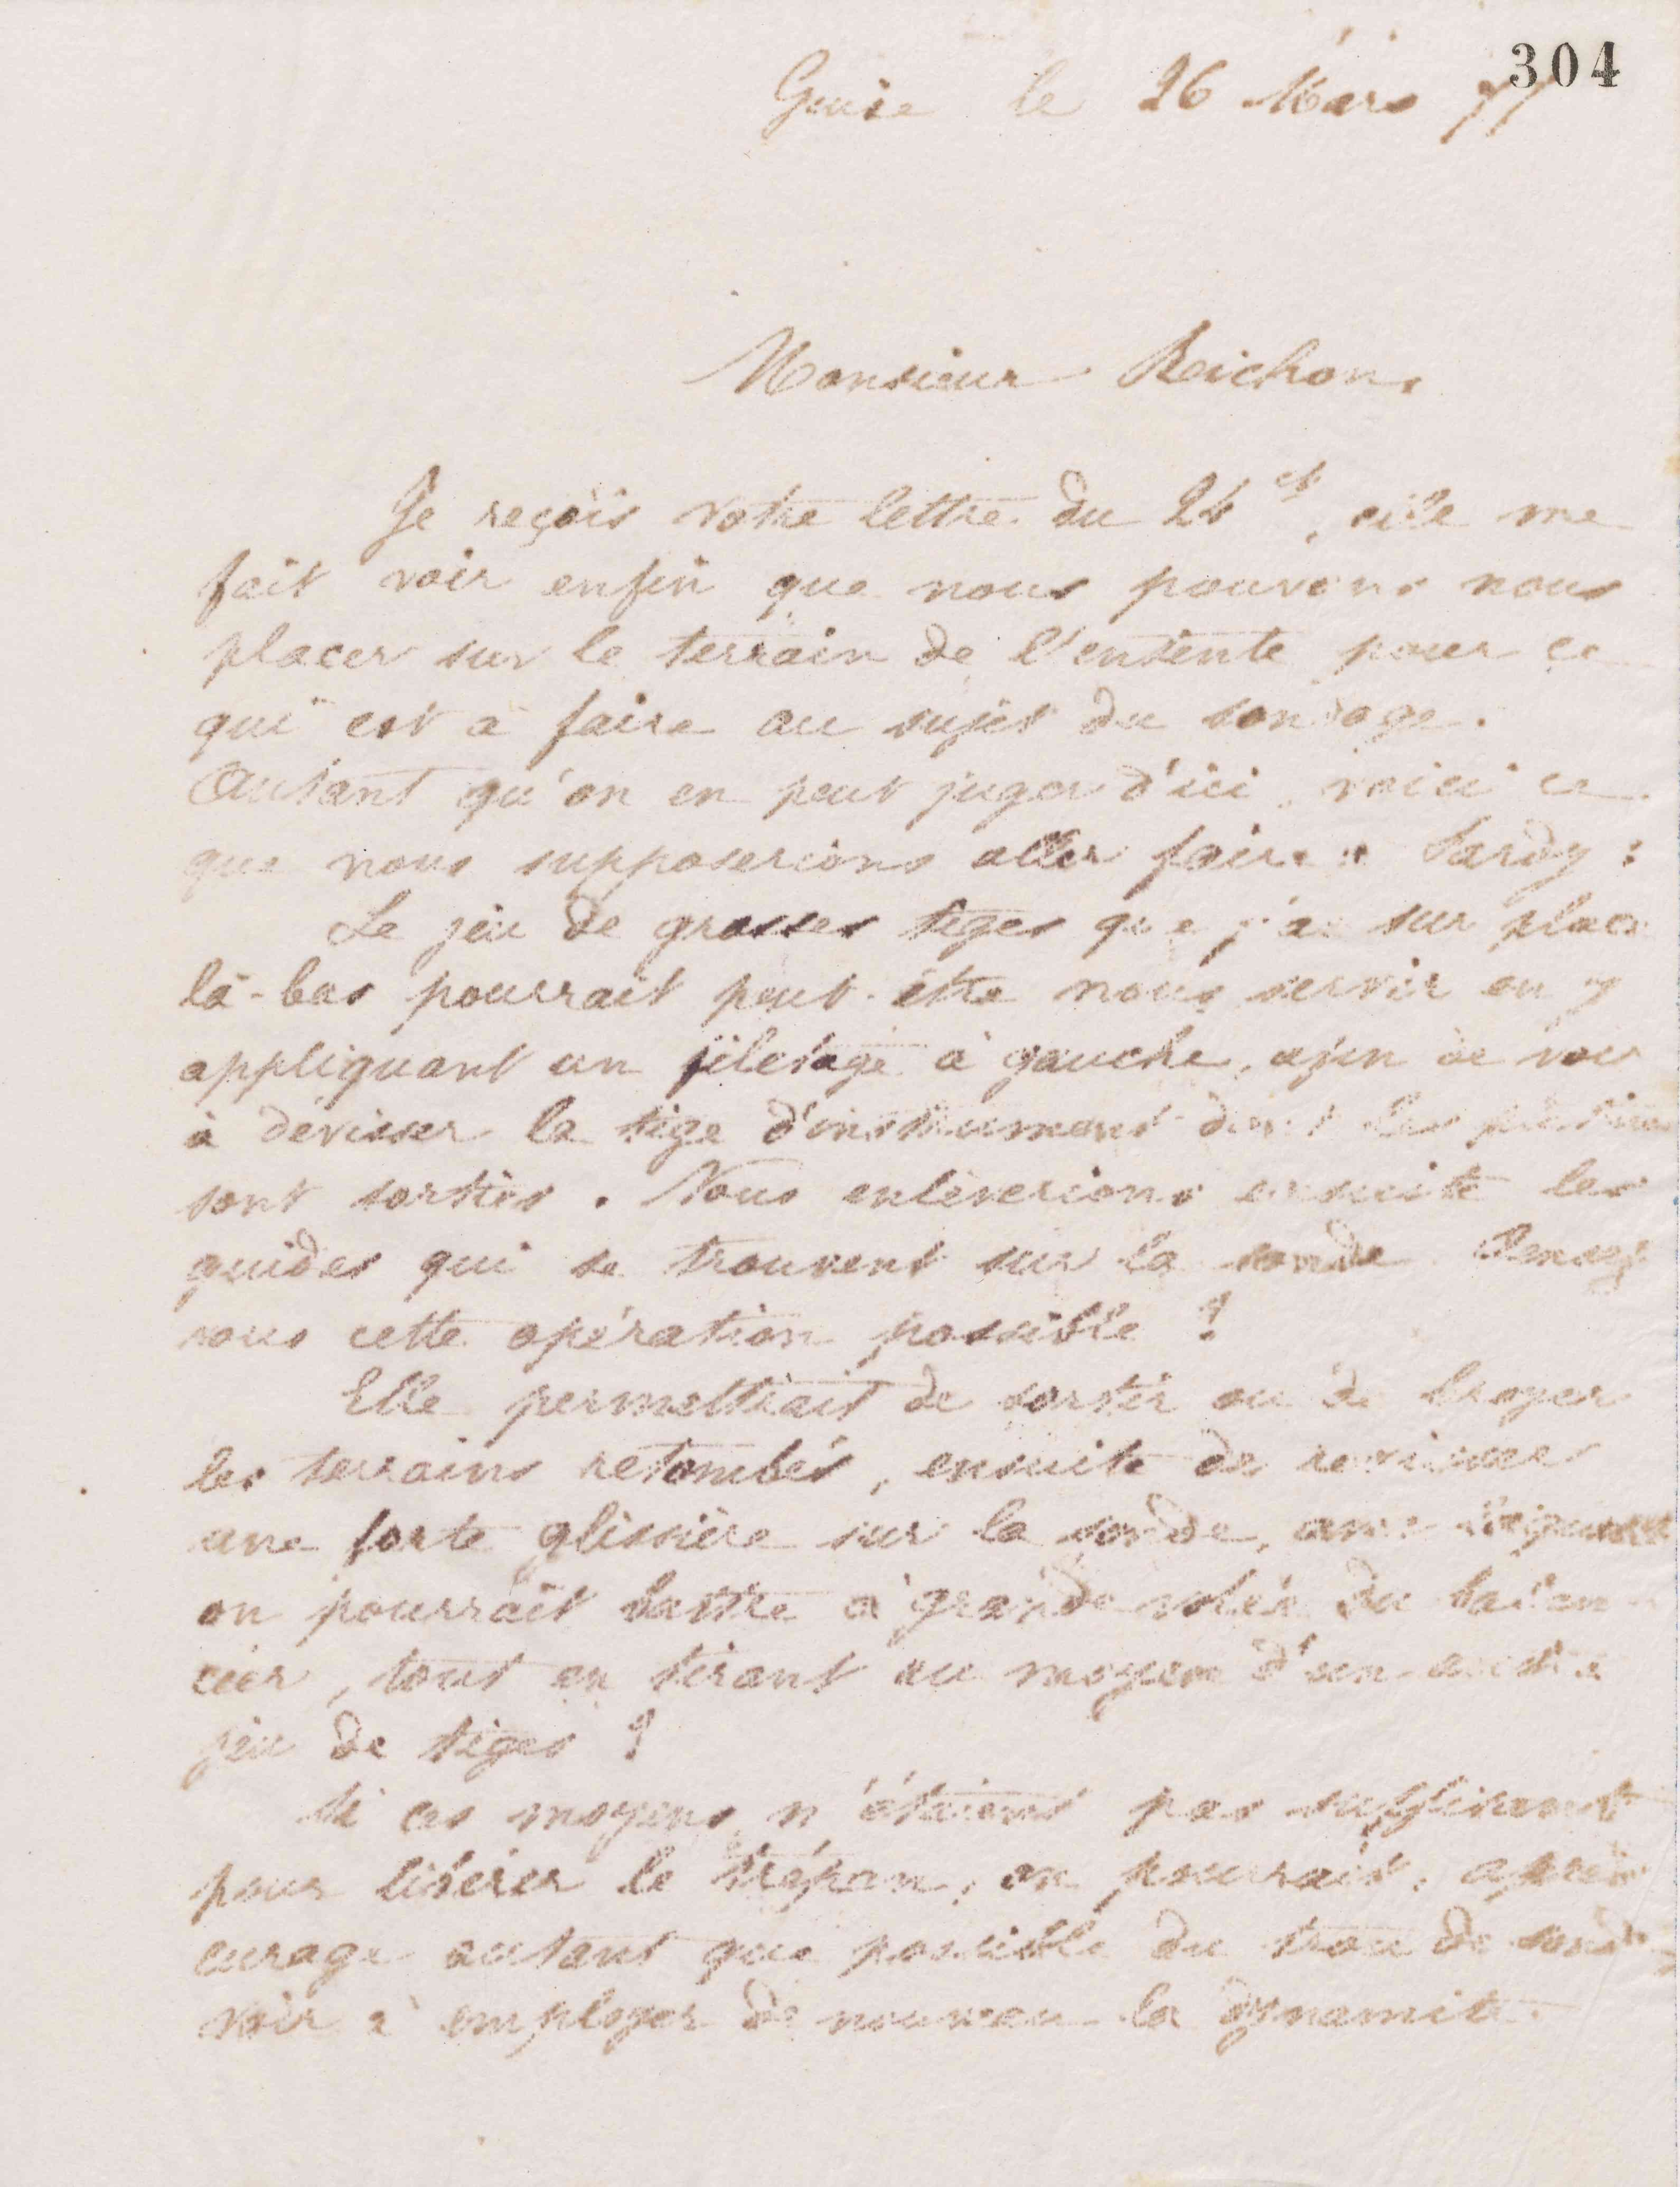 304
Guise le 26 Mars 77
Monsieur Reichon,
Je reçois votre lettre du 24 ct, elle me
fait voir enfin que nous pouvons nous
placer sur le terrain de l'entente pour ce
qui est à faire au sujet du sondage.
Autant qu'on en peut juger d'ici, voici ce
que nous supposerions aller faire à Sardy :
Le jeu de grosses tiges que j'ai sur place
là-bas pourrait peut-être nous servir en y
appliquant un filetage à gauche, afin de voir
à dévisser la tige d'instrument dont les
sont sorties. Nous enlèverions ensuite les
guides qui se trouvent sur la sonde. Pensez
vous cette opération possible ?
Elle permettrait de sortir ou de broyer
les terrains retombés, ensuite de revisser
une forte glissière sur la sonde, avec laquelle
on pourrait battre à grande volée du balan
cier, tout en tirant au moyen d'un autre
jeu de tiges ?
Si ces moyens n'étaient pas suffisants
pour libérer le trépan, on pourrait, après
curage autant que possible du trou de sonde
voir à employer de nouveau la dynamite.